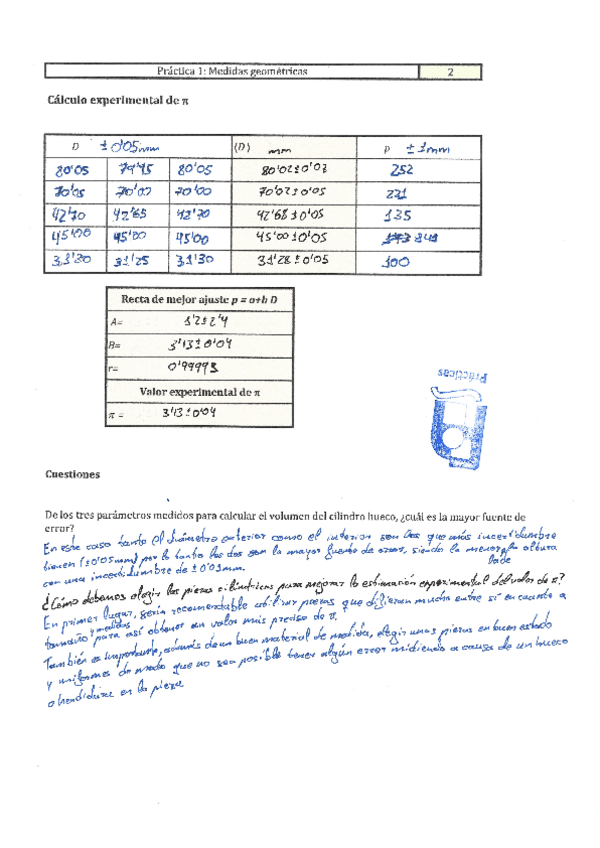 Práctica 1: Medidas geométricas 2
Cálculo experimental de π
D ±0'05mm ⟨D⟩ mm p ±1mm
80'05 79'95 80'05 80'02±0'03 252
70'05 70'00 70'00 70'02±0'05 221
42'70 42'65 42'70 42'68±0'05 135
45'00 45'00 45'00 45'00±0'05
31'30 31'25 31'30 31'28±0'05 100
Recta de mejor ajuste p = a+b D
A= 1'2±2'4
B= 3'13±0'04
r= 0'99993
Valor experimental de π
π = 3'13±0'04
Prácticas
Cuestiones
De los tres parámetros medidos para calcular el volumen del cilindro hueco, ¿cuál es la mayor fuente de
error?
En este caso tanto el diámetro exterior como el interior son los que más incertidumbre
tienen (±0'05mm) por lo tanto los dos son la mayor fuente de error, siendo la menor la altura
con una incertidumbre de ±0'01mm.
¿Cómo debemos elegir las piezas cilíndricas para mejorar la estimación experimental del valor de π?
En primer lugar, sería recomendable utilizar piezas que difieran mucho entre sí en cuanto a
tamaño y medidas para así obtener un valor más preciso de π.
También es importante, además de un buen material de medida, elegir unas piezas en buen estado
y uniformes de modo que no sea posible tener algún error midiendo a causa de un hueco
o hendidura en la pieza